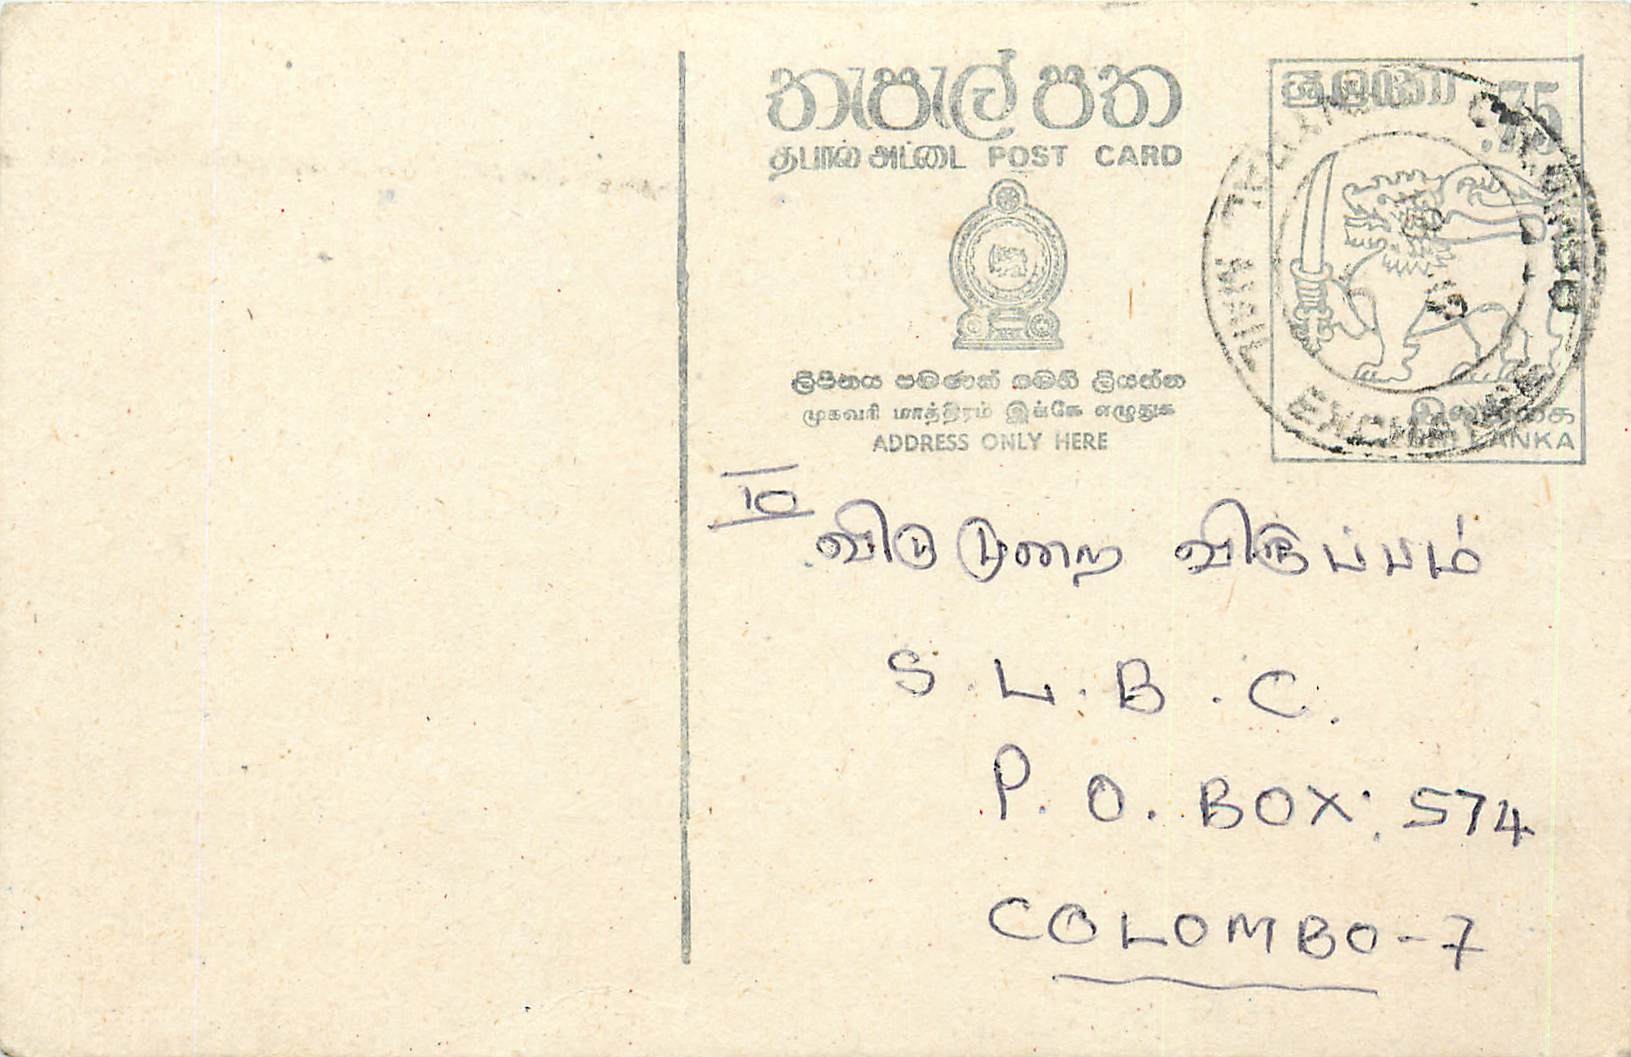 තැපැල් පත
தபால் அட்டை POST CARD
ලිපිනය පමණක් මෙහි ලියන්න
முகவரி மாத்திரம் இங்கே எழுதுக
ADDRESS ONLY HERE
ශ්‍රී ලංකා .75
.75
இலங்கை
SRI LANKA
EXCHANGE
10
விடுமுறை விருப்பம்
S. L. B. C.
P. O. BOX: 574
COLOMBO-7